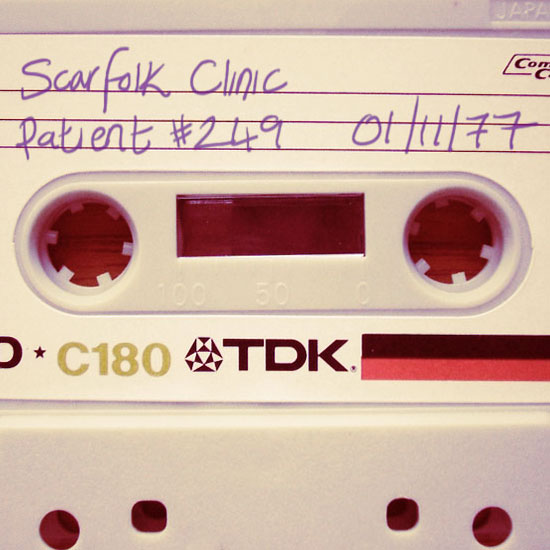 JAPA
Scarfolk Clinic
Com
C
Patient #249 01/11/77
100 50 0
D ★ C180 TDK